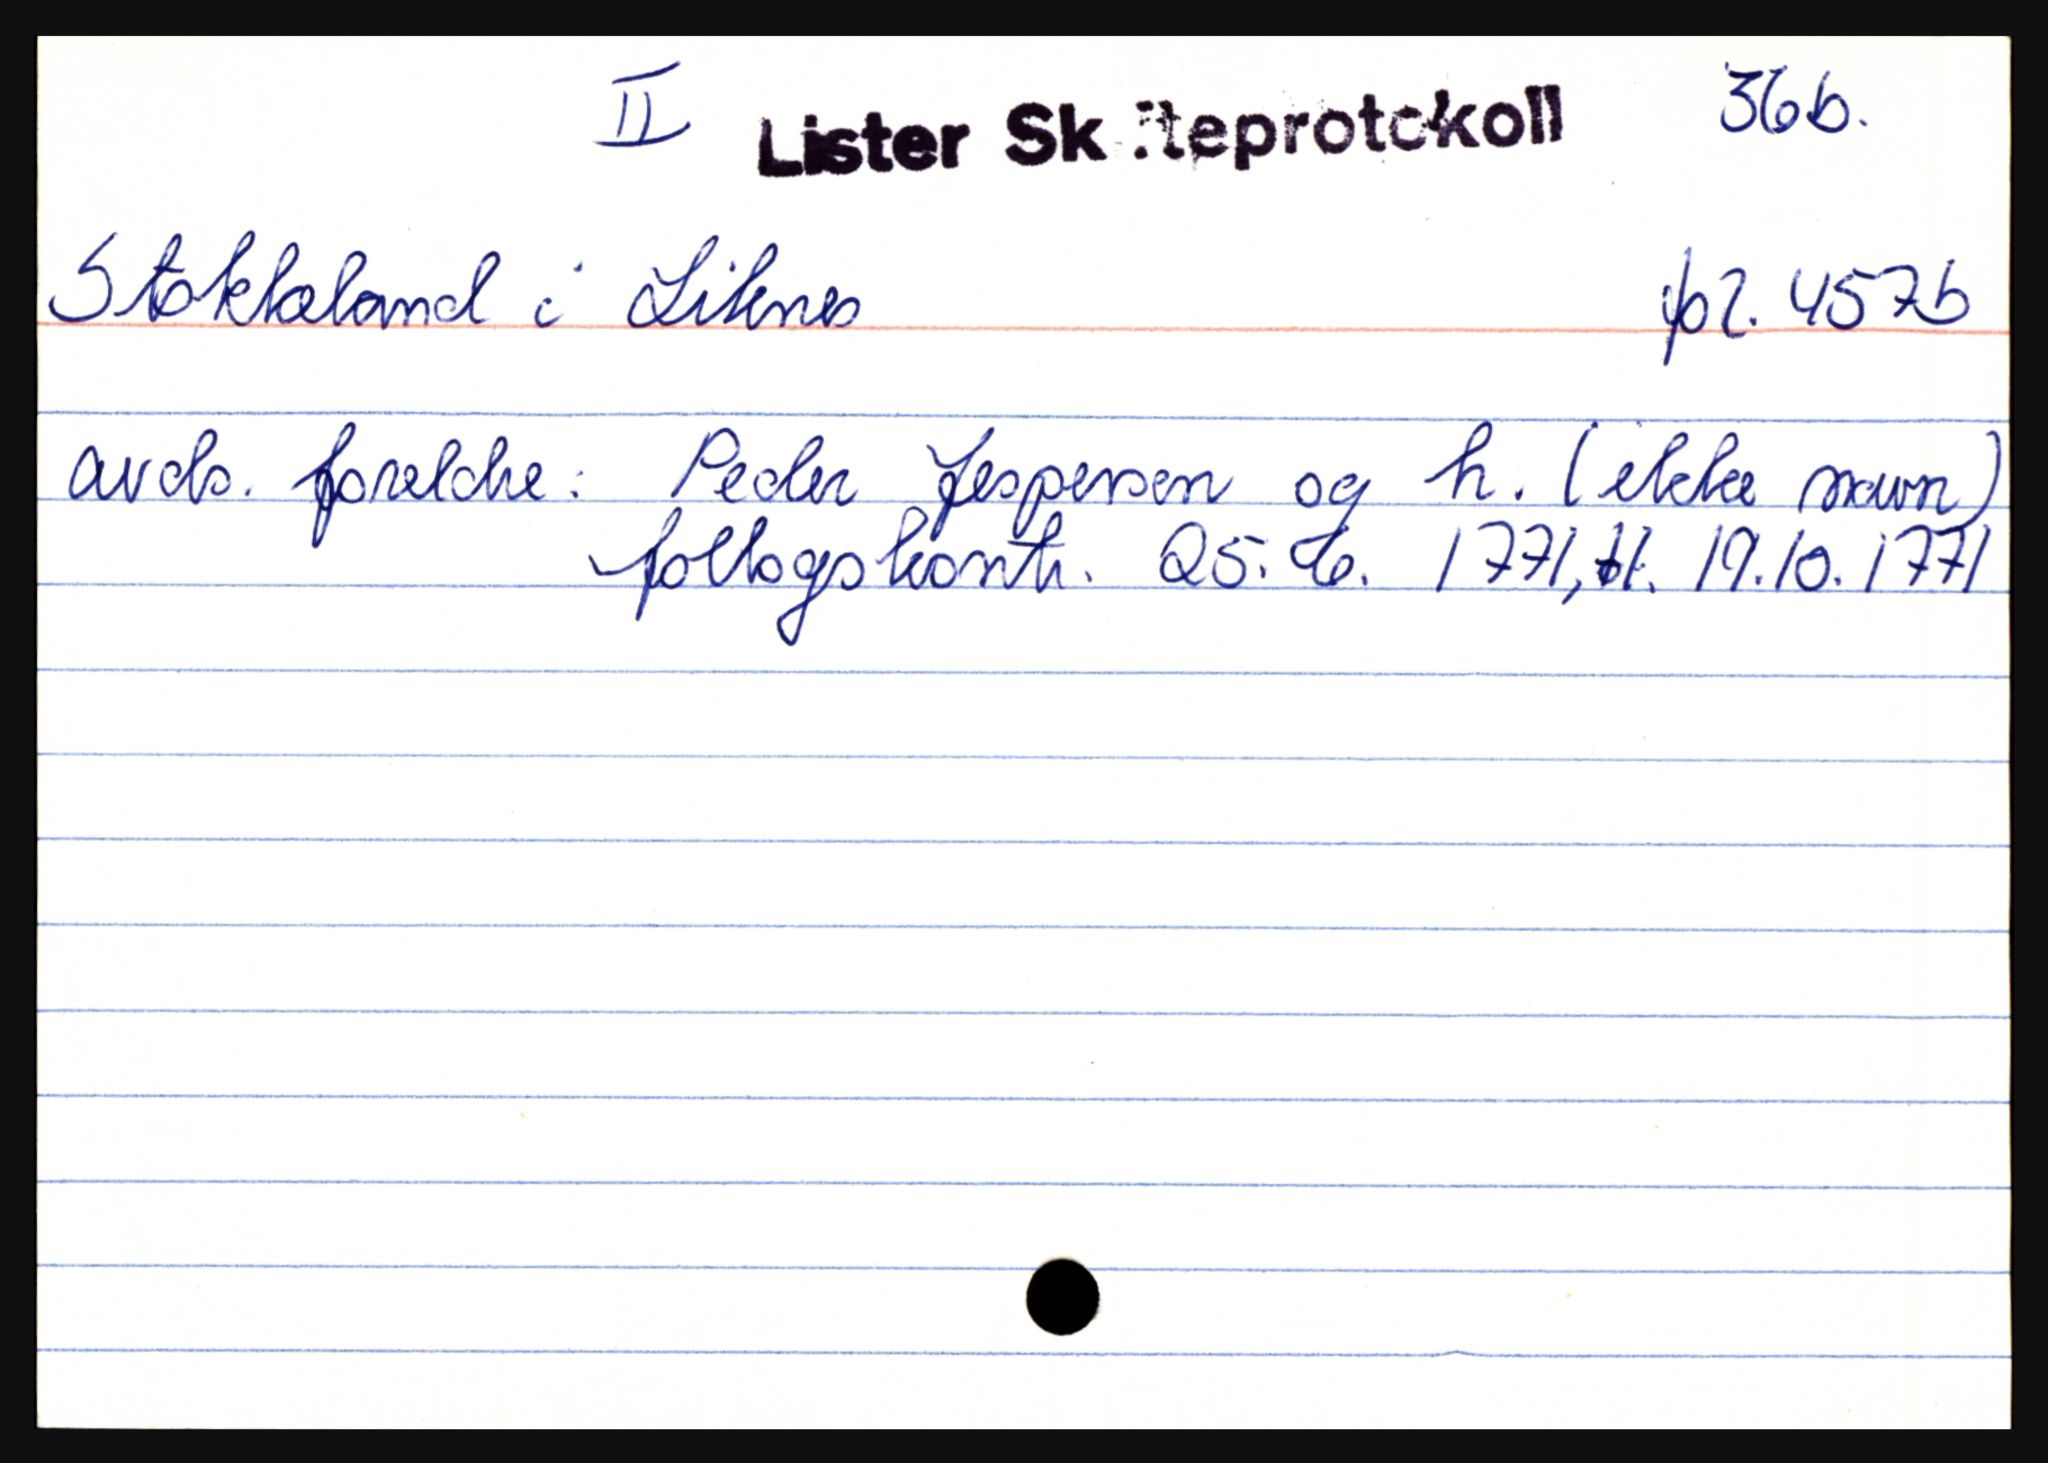 II Lister Skifteprotokoll 36b.
Stokkeland i Liknes fol. 457b
avds. foreldre: Peder Jespersen og h. (ikke navn)
follogskontr. 25.6. 1771, tl. 19.10.1771